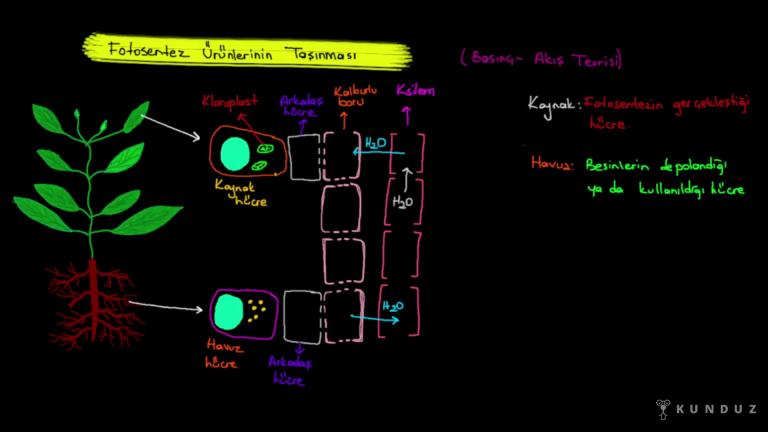 Fotosentez Ürünlerinin Taşınması
(Basınç- Akış Teorisi)
Kloroplast
Arkadaş
hücre
Kalburlu
boru
Ksilem
H₂O
H₂O
Kaynak
hücre
Kaynak: Fotosentezin gerçekleştiği
hücre.
Havuz: Besinlerin depolandığı
ya da kullanıldığı hücre
H₂O
Havuz
hücre
Arkadaş
hücre
KUNDUZ